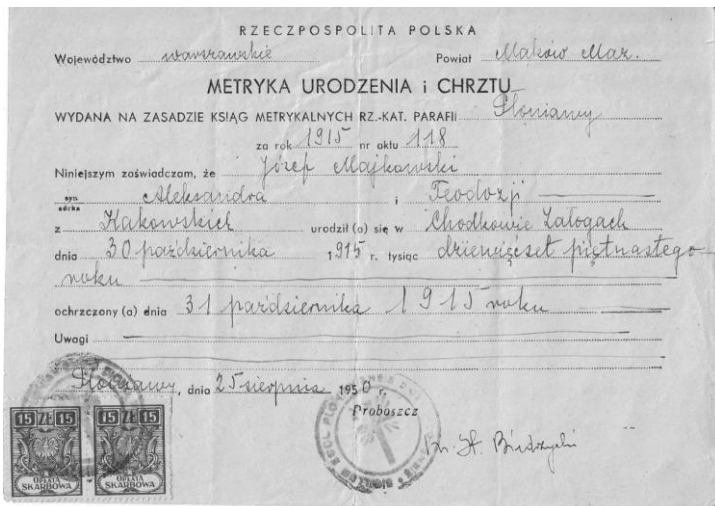 RZECZPOSPOLITA POLSKA
Województwo warszawskie Powiat Maków Maz.
METRYKA URODZENIA i CHRZTU
WYDANA NA ZASADZIE KSIĄG METRYKALNYCH RZ.-KAT. PARAFII Płoniawy
za rok 1915 nr aktu 118
Niniejszym zaświadczam, że Józef Majkowski
syn córka Aleksandra i Teodozji
z Kakowskich urodził (a) się w Chodkowie Załogach
dnia 30 października 1915 r. tysiąc dziewięćset piętnastego
roku
ochrzczony (a) dnia 31 października 1915 roku
Uwagi
Płoniawy, dnia 25 sierpnia 1950 r.
Proboszcz
Ks. St.
15 ZŁ 15 15 ZŁ 15
OPŁATA SKARBOWA OPŁATA SKARBOWA